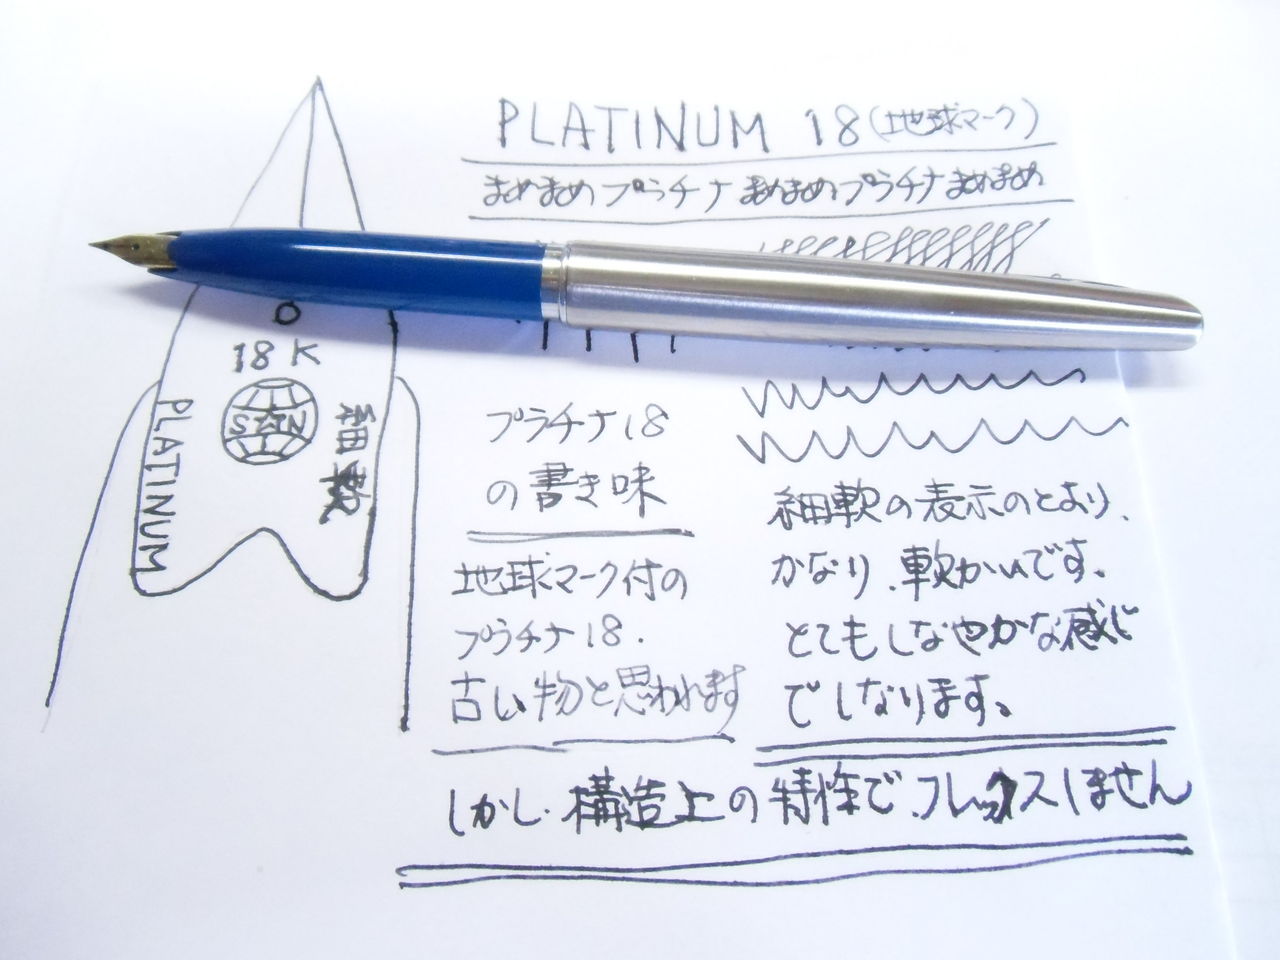 PLATINUM 18(地球マーク)
まめまめプラチナまめまめプラチナまめまめ
18K
S☆N
PLATINUM
細軟
プラチナ18
の書き味
地球マーク付の
プラチナ18.
古い物と思われます
細軟の表示のとおり、
かなり、軟かいです。
とてもしなやかな感じ
でしなります。
しかし、構造上の特性で、フレックスしません